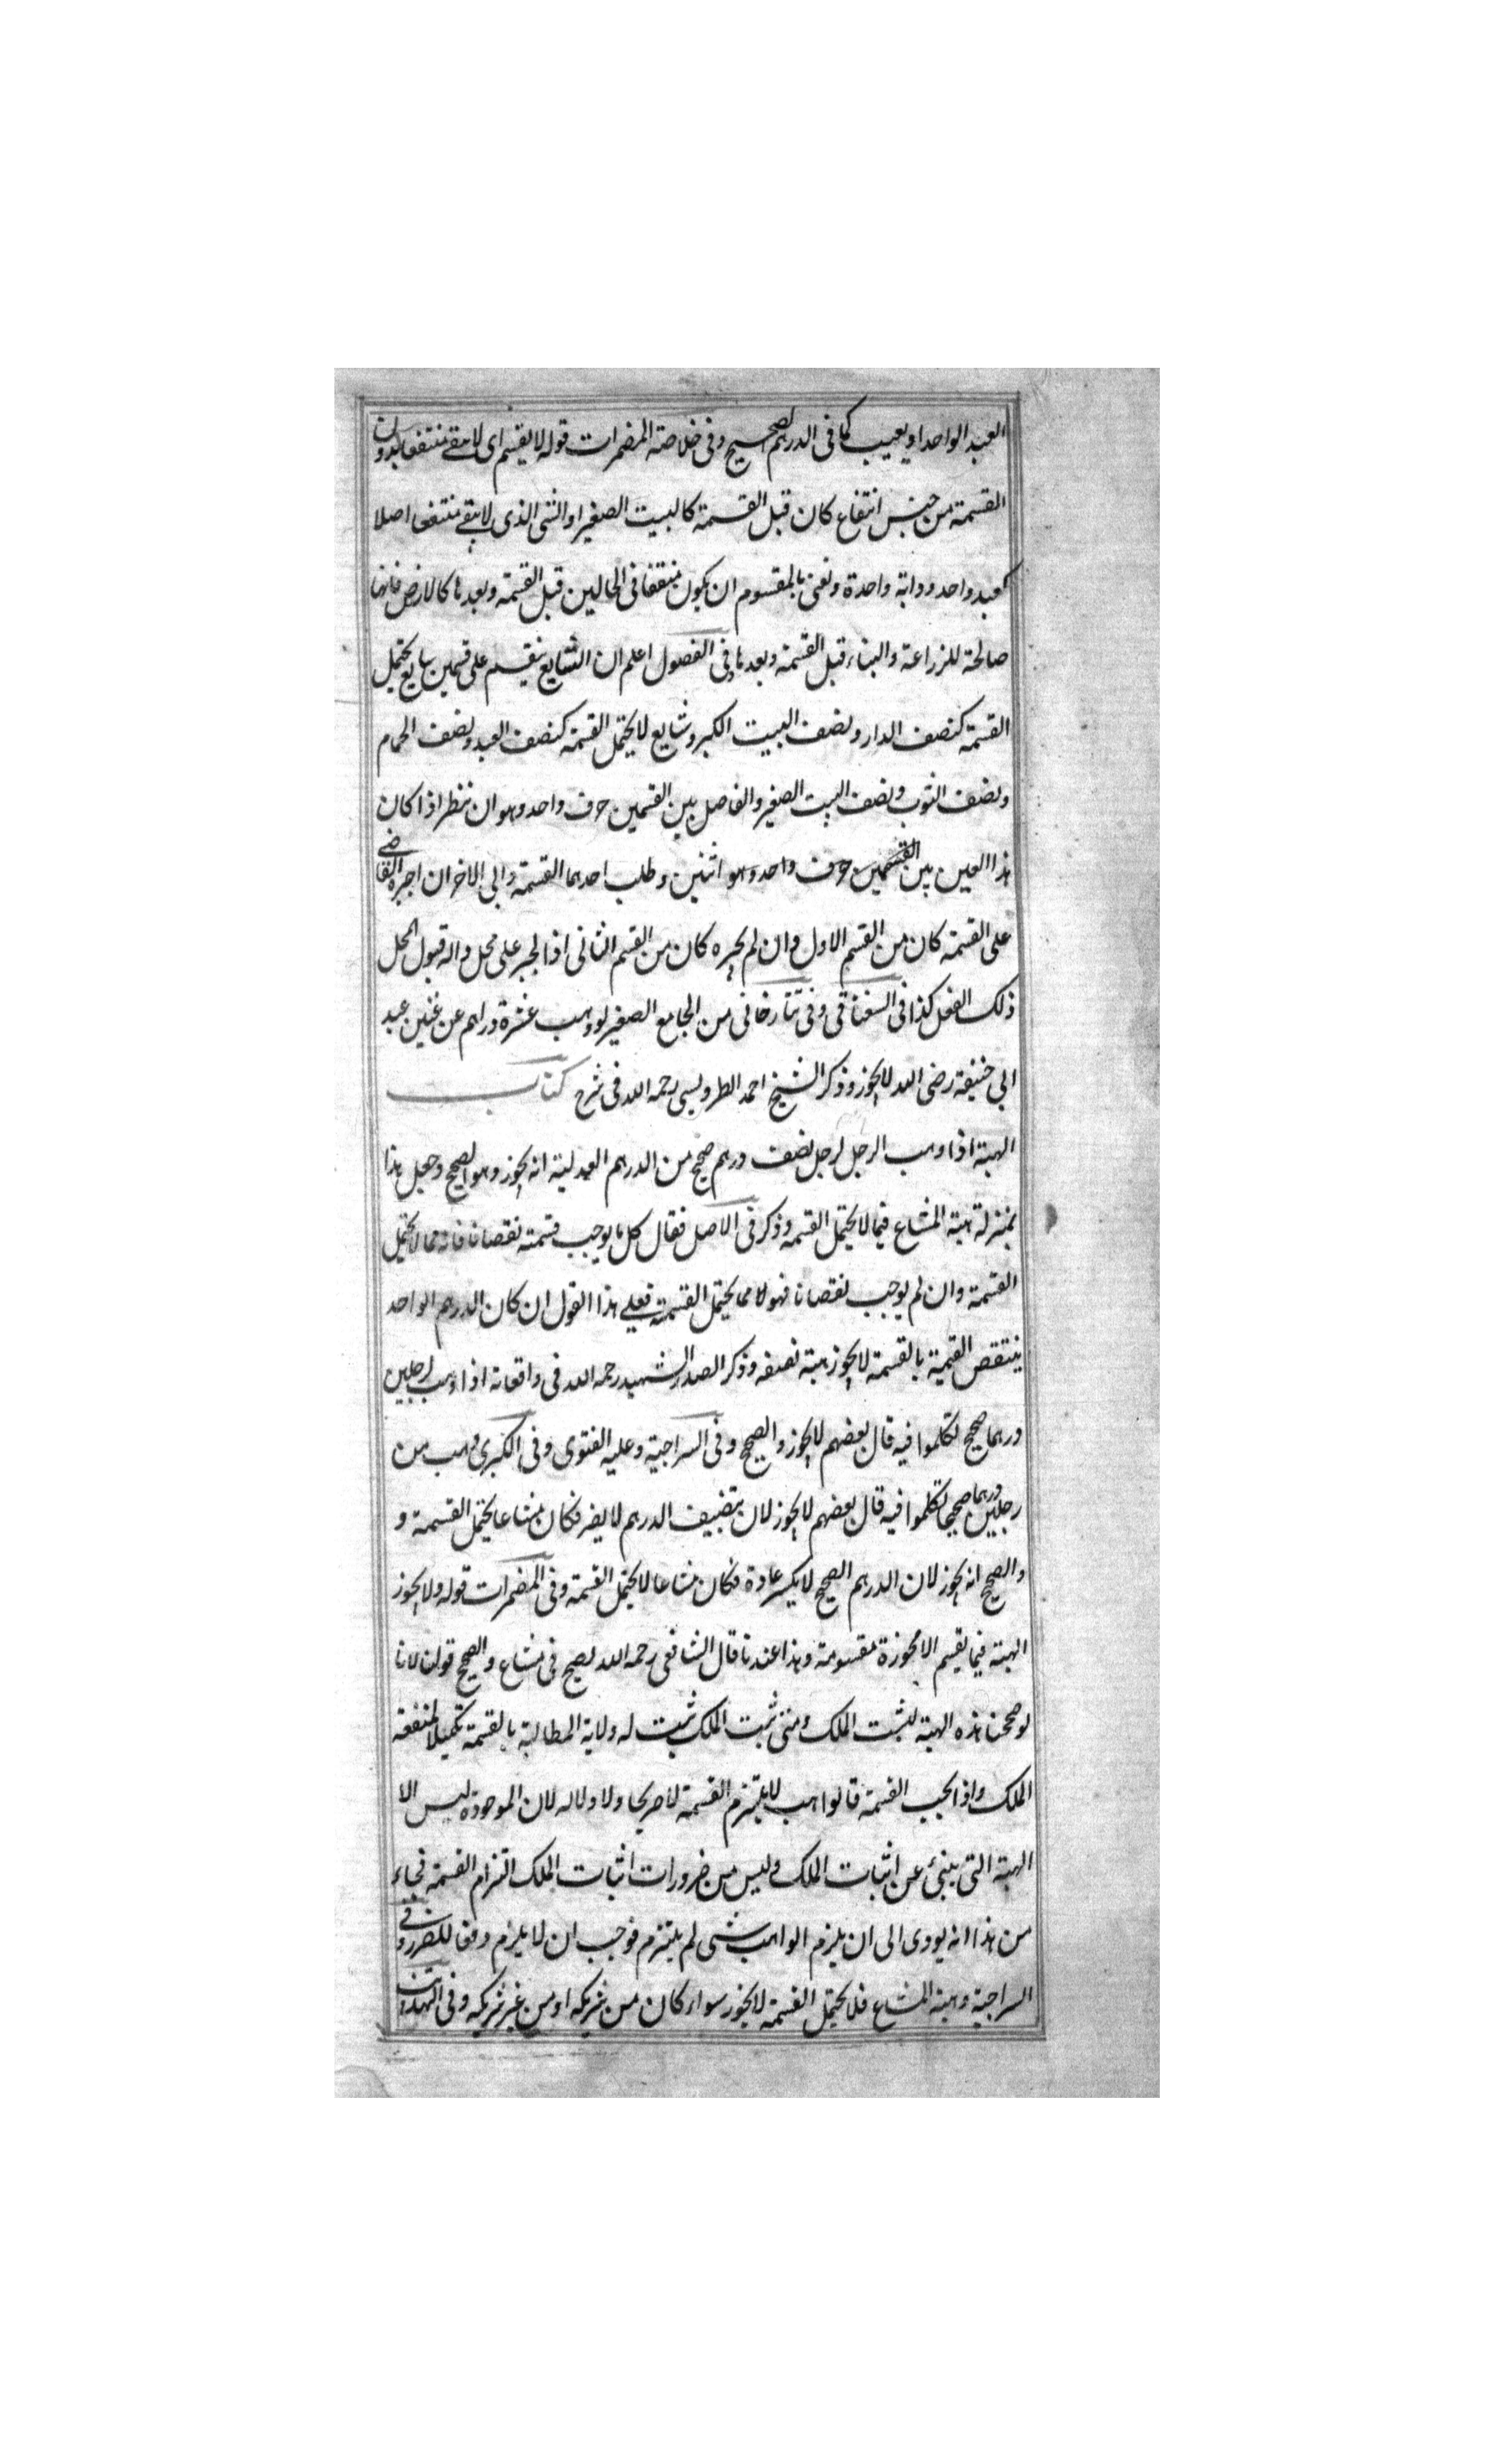 العبد الواحد او يعيب كما فى الدرهم الصحيح وفى خلاصة المضمرات قوله لا يقسم اى لا يبقى منتفعا بدون
القسمة من جنس انتفاع كان قبل القسمة كالبيت الصغير او الشى الذى لا يبقى منتفعا اصلا
كعبد واحد ودابة واحدة ونعنى بالمقسوم ان يكون منتفعا فى الحالين قبل القسمة وبعدها كالارض فانها
صالحة للزراعة والبناء قبل القسمة وبعدها وفى الفصول اعلم ان الشايع ينقسم على قسمين شايع يحتمل
القسمة كنصف الدار ونصف البيت الكبير وشايع لا يحتمل القسمة كنصف العبد ونصف الحمام
ونصف الثوب ونصف البيت الصغير والفاصل بين القسمين حرف واحد وهو ان ننظر اذا كان
هذا العين بين القسمين حرف واحد وهو اثنين وطلب احدهما القسمة وابى الاخر ان اجبره القاضى
على القسمة كان من القسم الاول وان لم يجبره كان من القسم الثانى اذ الجبر على محل واله قبول المحل
ذلك الفعل كذا فى السغناقى وفى تتارخانى من الجامع الصغير لو وهب عشرة دراهم عن غنيين عبد
ابى حنيفة رضى الله لا يجوز وذكر الشيخ احمد الطرويسى رحمه الله فى شرح كتاب
الهبة اذا وهب الرجل لرجل نصف درهم صحيح من الدرهم العدلية انه يجوز وهو الصحيح وجعل هذا
بمنزلة هبة المشاع فيما لا يحتمل القسمة وذكر فى الاصل فقال كل ما يوجب قسمته نقصانا فانه مما لا يحتمل
القسمة وان لم يوجب نقصانا فهو لا مما يحتمل القسمة فعلى هذا القول ان كان الدرهم الواحد
ينتقص القيمة بالقسمة لا يجوز هبة نصفه وذكر الصدر الشهيد رحمه الله فى واقعاته اذا وهب لرجلين
درهما صحيح تكلموا فيه قال بعضهم لا يجوز والصحيح وفى السراجية وعليه الفتوى وفى الكبرى وهب من
رجلين درهما صحيحا تكلموا فيه قال بعضهم لا يجوز لان بتنصيف الدرهم لا يضر فكان مشاعا يحتمل القسمة و
والصحيح انه يجوز لان الدرهم الصحيح لا يكسر عادة فكان مشاعا لا يحتمل القسمة وفى المضمرات قوله ولا يجوز
الهبة فيما يقسم الا محوزة مقسومة وهذا عندنا قال الشافعى رحمه الله يصح فى مشاع والصحيح قولنا لانا
لو صححنا هذه الهبة لثبت الملك ومتى ثبت الملك ثبت له ولاية المطالبة بالقسمة تكميلا لمنفعة
الملك واذا يجب القسمة قالواهب لا يلتزم القسمة لا صريحا ولا دلاله لان الموجودة ليس الا
الهبة التى ينبئ عن اثبات الملك وليس من ضرورات اثبات الملك التزام القسمة فجاء
من هذا انه يودى الى ان يلزم الواهب شى لم يلتزم فوجب ان لا يلزم دفعا للضرر وفى
السراجية وهبة المشاع فلا يحتمل القسمة لا يجوز سواء كان من شريكه او من غير شريكه وفى التهذيب